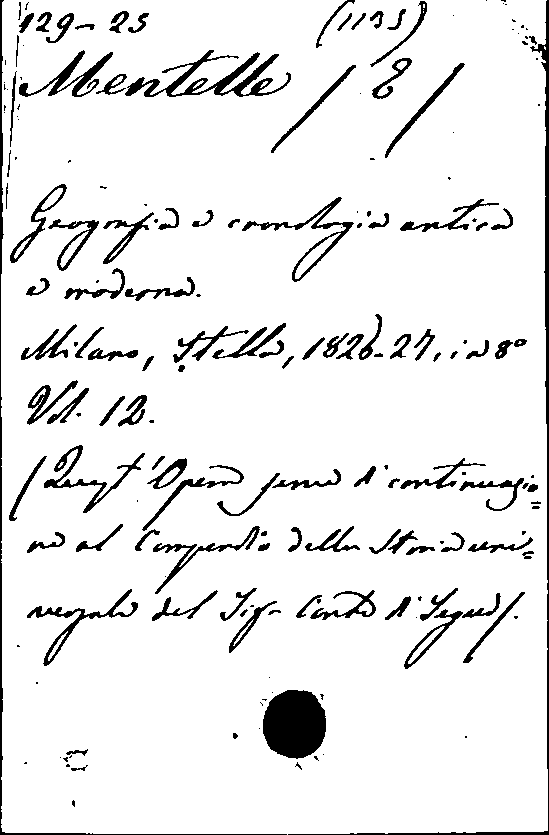 129-25 (1135)
Mentelle /E/
Geografia e cronologia antica
e moderna.
Milano, Stella, 1826-27, in 8°
Vol. 12.
(Quest'Opera serve di continuazio=
ne al Compendio della Storia uni=
versale del Sig. Conte di Segur).